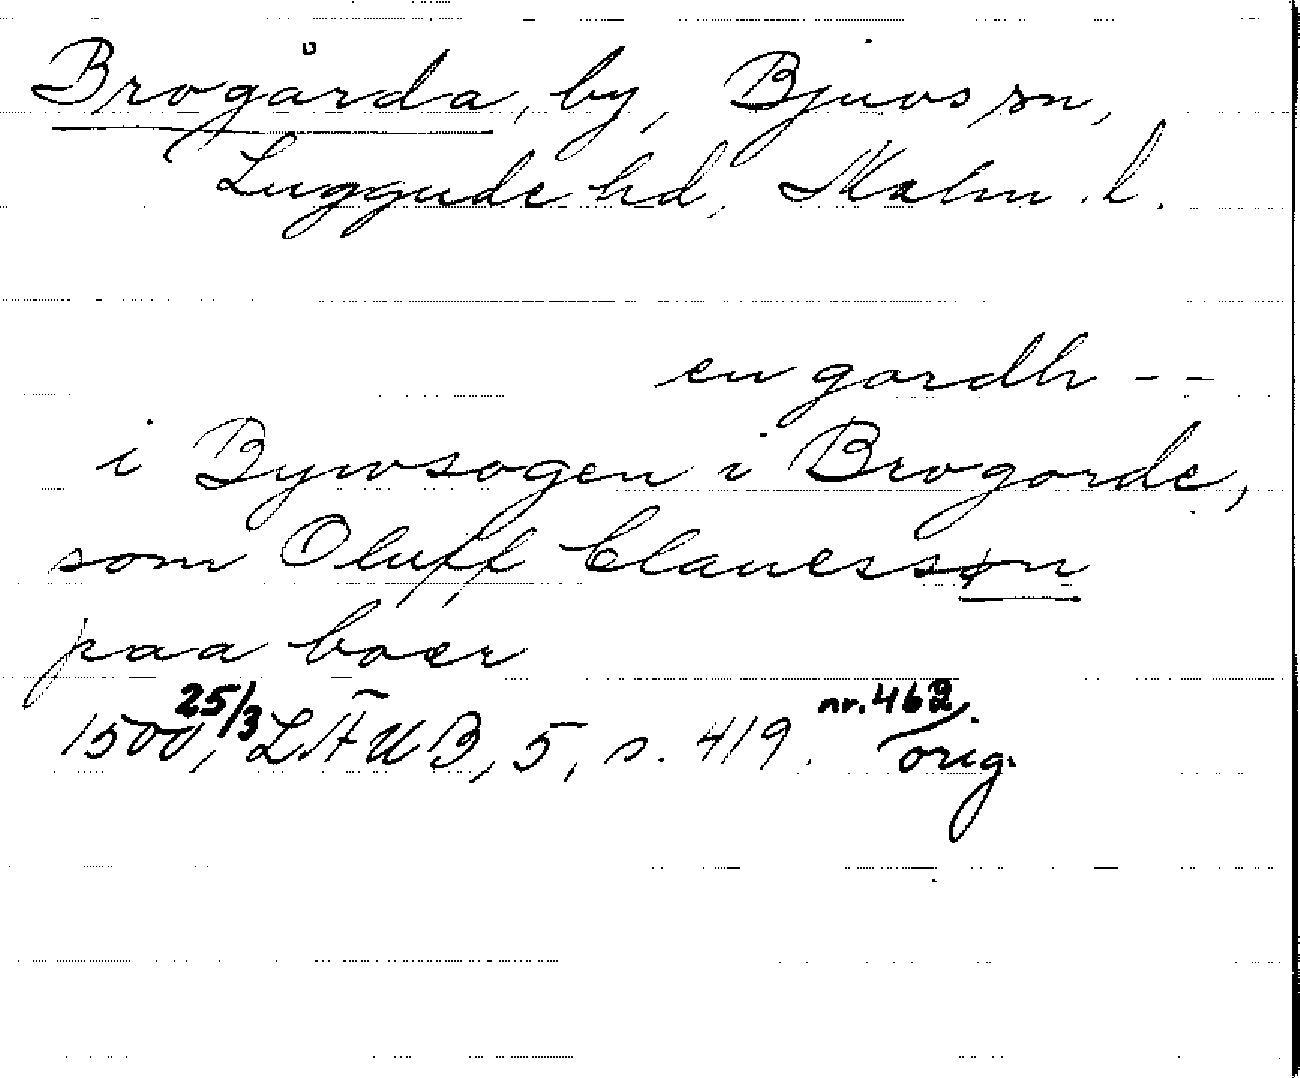 Brogårda, by, Bjuvs sn,
Luggude hd, Malm. l.
en gardh --
i Bywsogen i Brogorde,
som Oluff Clauessøn
paa boer
1500 25/3, LÄUB, 5, s. 419. nr. 462. orig.